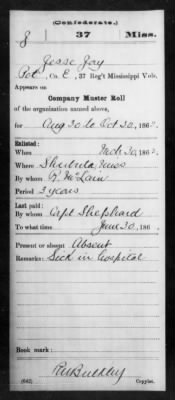 (Confederate.)
8 37 Miss.
Jesse Jay
Pvt, Co. E, 37 Reg't Mississippi Vols.
Appears on
Company Muster Roll
of the organization named above,
for Aug 30 to Oct 30, 1862.
Enlisted:
When Mch 30, 1862.
Where Shubuta, Miss
By whom R. McLain
Period 3 years
Last paid:
By whom Capt Shephard
To what time June 30, 186 .
Present or absent Absent
Remarks: Sick in hospital
Book mark:
(642) Copyist.